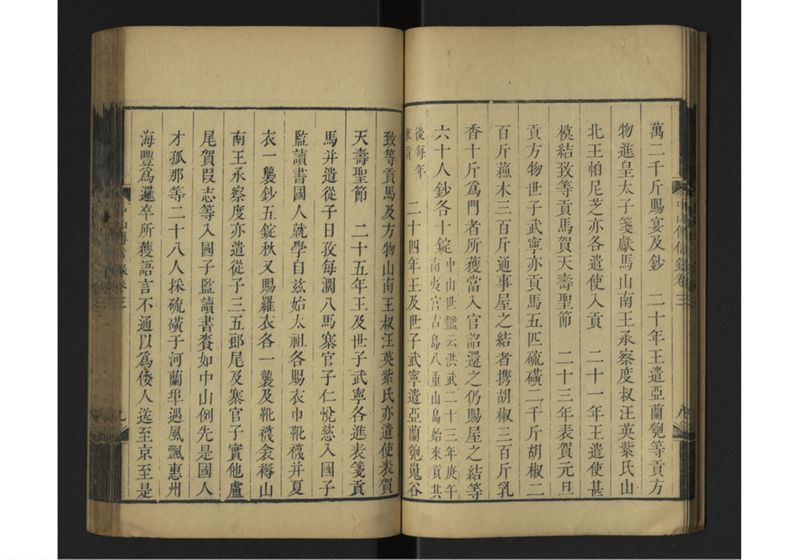 萬二千斤賜宴及鈔　二十年王遣亞蘭匏等貢方
物進皇太子箋獻馬山南王承察度叔汪英紫氏山
北王帕尼芝亦各遣使入貢　二十一年王遣使甚
模結致等貢馬賀天壽聖節　二十三年表賀元旦
貢方物世子武寧亦貢馬五匹硫磺二千斤胡椒二
百斤蘇木三百斤通事屋之結者携胡椒三百斤乳
香十斤爲門者所獲當入官詔還之仍賜屋之結等
六十人鈔各十錠
中山世鑑云洪武二十三年庚午
南夷宮古島八重山島始來貢其
後每年
來貢
二十四年王及世子武寧遣亞蘭匏嵬谷
致等貢馬及方物山南王叔汪英紫氏亦遣使表賀
天壽聖節　二十五年王及世子武寧各進表箋貢
馬并遣從子日孜每濶八馬寨官子仁悅慈入國子
監讀書國人就學自兹始太祖各賜衣巾靴襪并夏
衣一襲鈔五錠秋又賜羅衣各一襲及靴襪衾褥山
南王承察度亦遣從子三五郎尾及寨官子實他盧
尾賀叚志等入國子監讀書賚如中山例先是國人
才孤那等二十八人採硫磺于河蘭埠遇風飄惠州
海豐爲邏卒所獲語言不通以爲倭人送至京至是